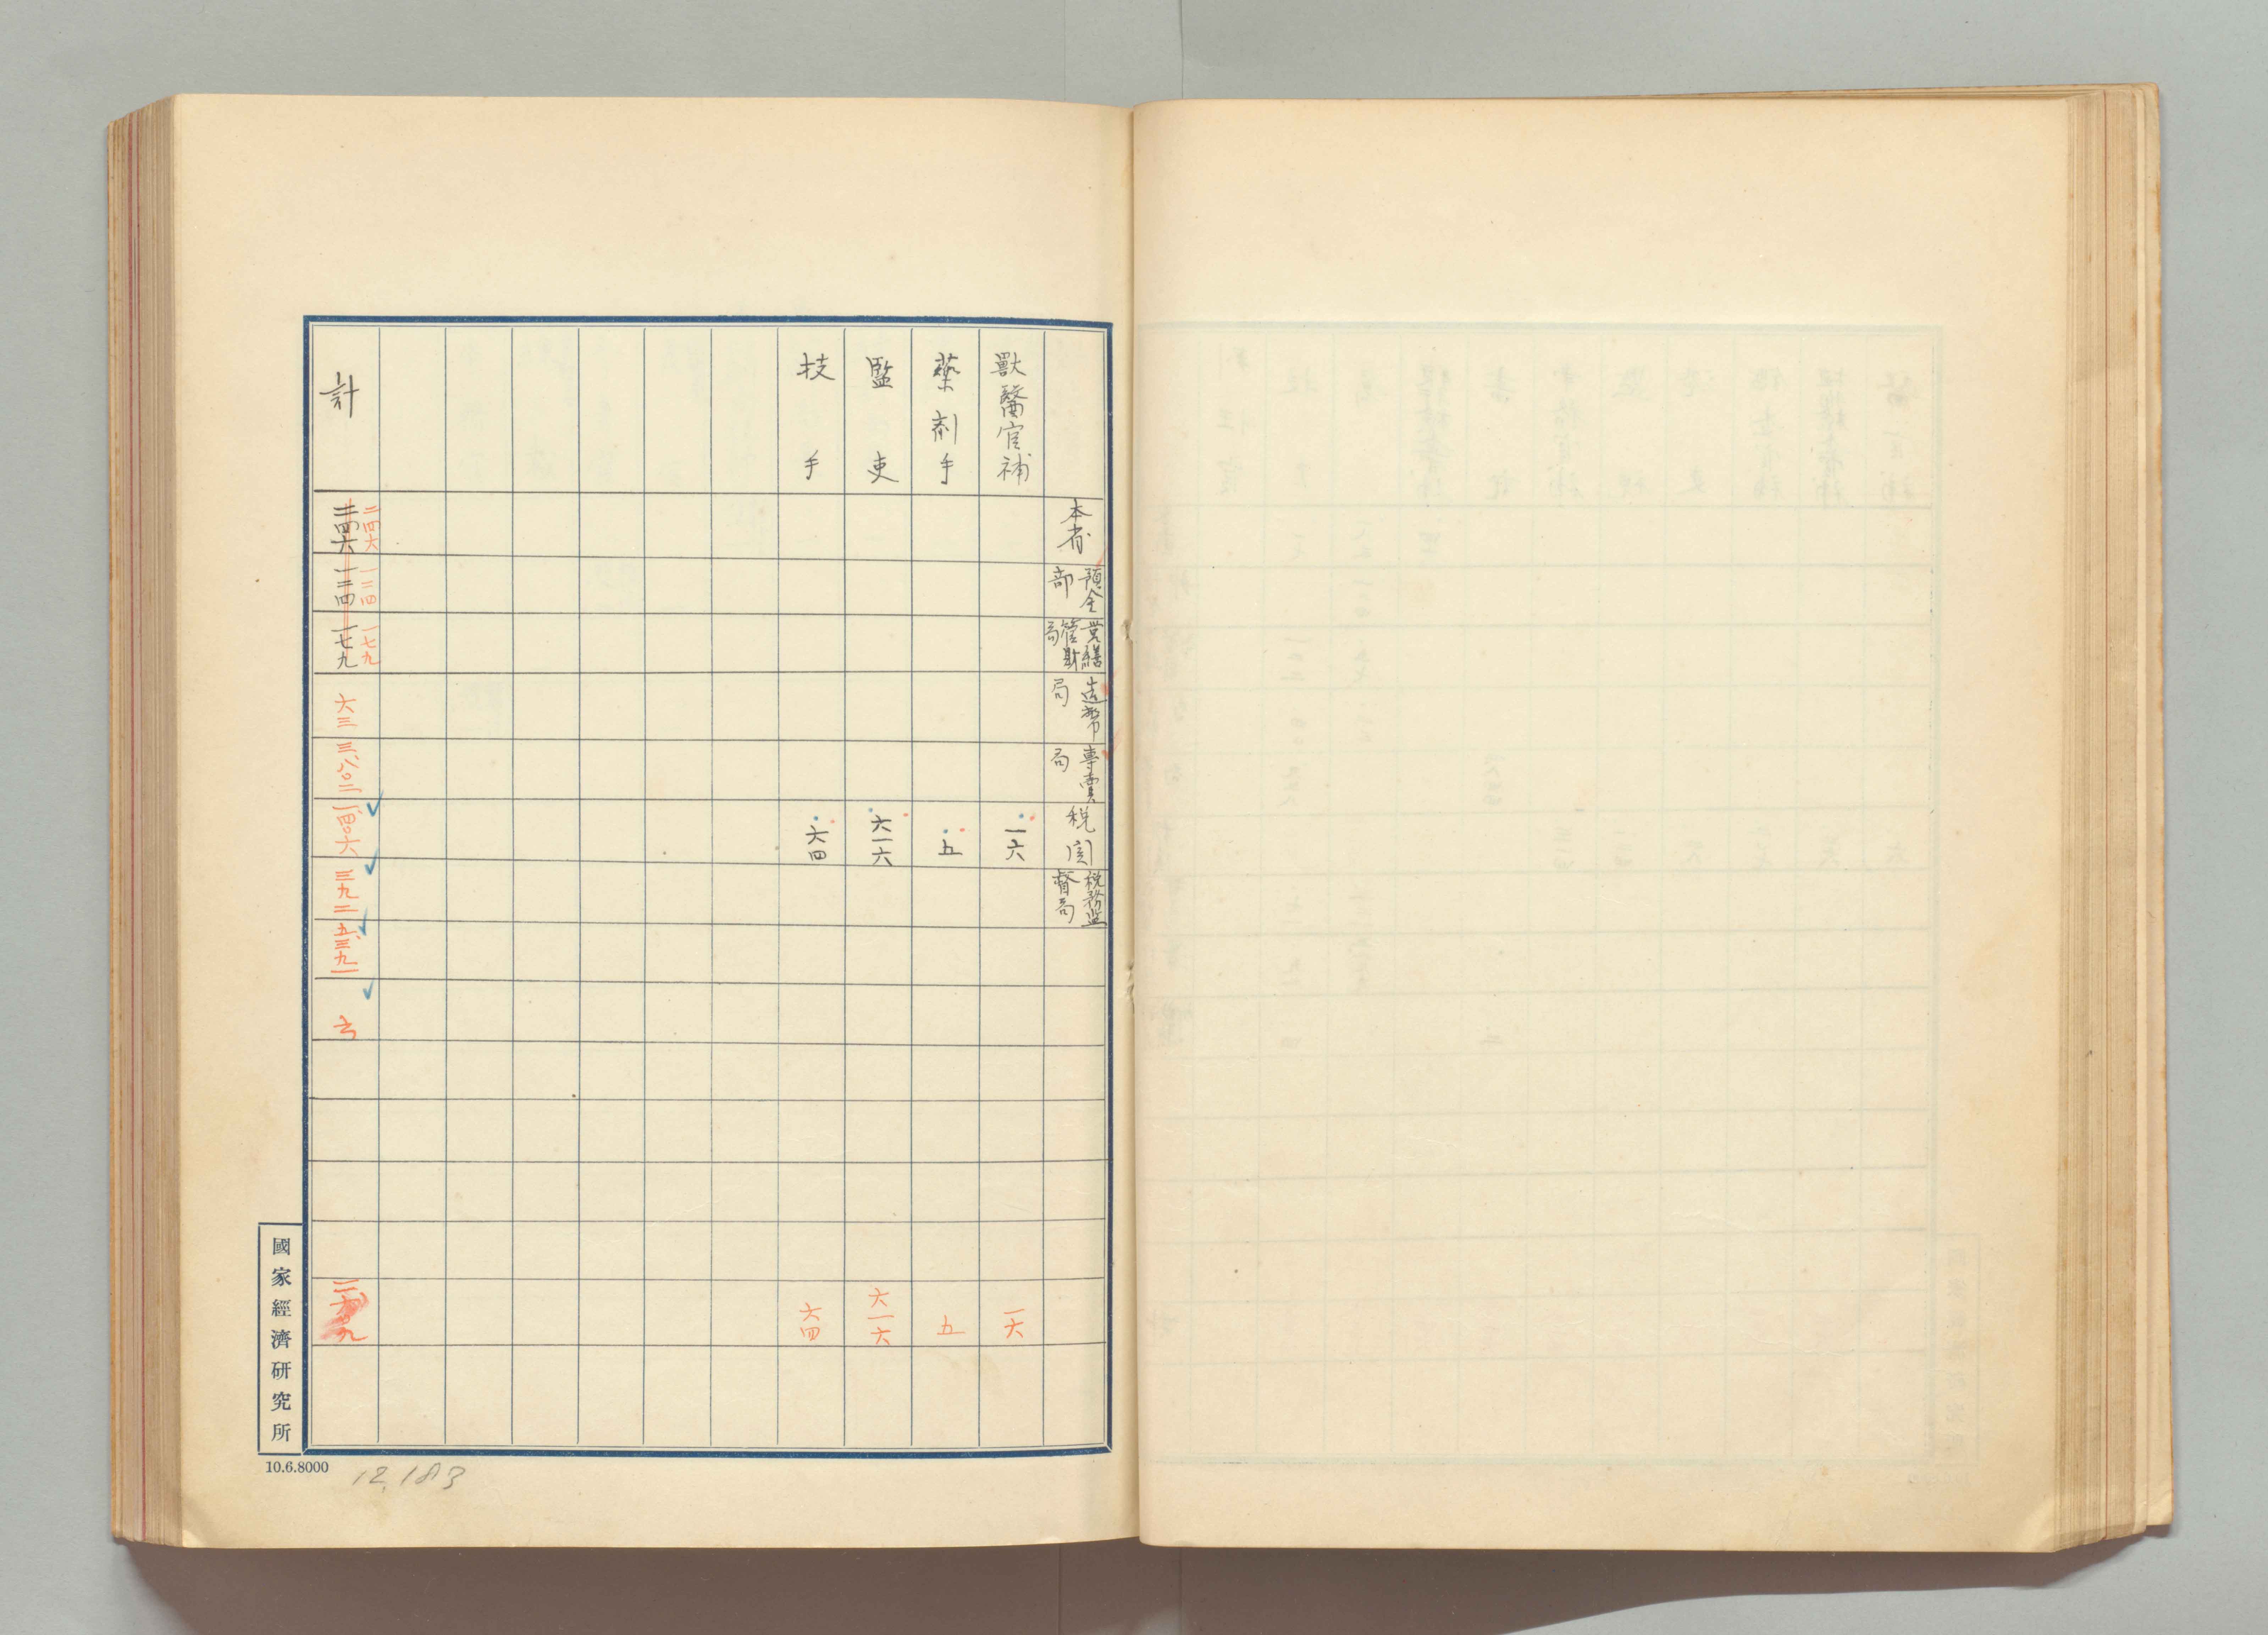 本省
預金部
営繕管財局
造幣局
専賣局
税関
税務監督局
獸醫官補
一六
一六
藥剤手
五
五
監吏
六一六
六一六
技手
六四
六四
計
二四六
二四六
一二四
一二四
一七九
一七九
六三
三、八〇二
一、四〇六
三九二
五、三九一
六
國家經濟研究所
10.6.8000
12,183